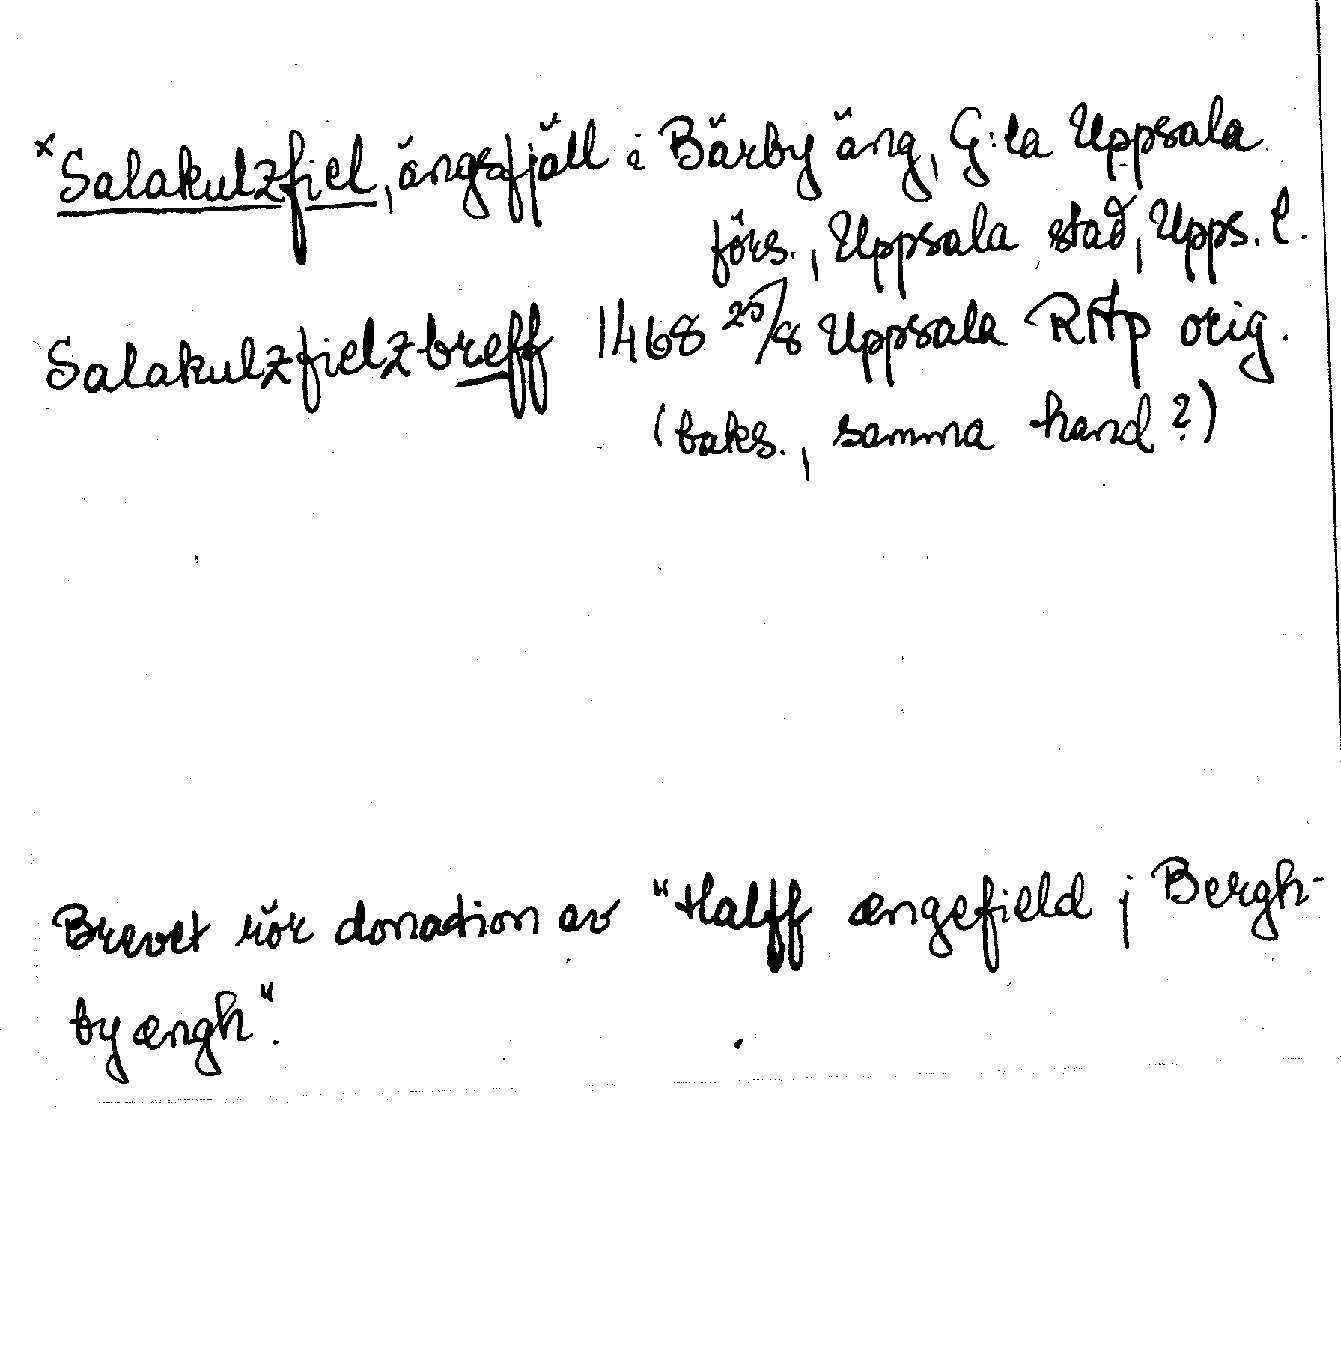 ×Salakulzfiel, ängsfjäll i Bärby äng, G:la Uppsala
förs., Uppsala stad, Upps. l.
Salakulzfielzbreff 1468 25/8 Uppsala RAp orig.
(baks., samma hand?)
Brevet rör donation av "Halff ængefield j Bergh-
by ængh".